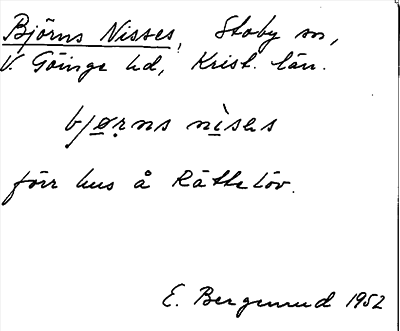 Björns Nisses, Stoby sn,
V. Göinge hd, Krist. län.
bjørṇs nises
förr hus å Rättelöv.
E. Bergemud 1952